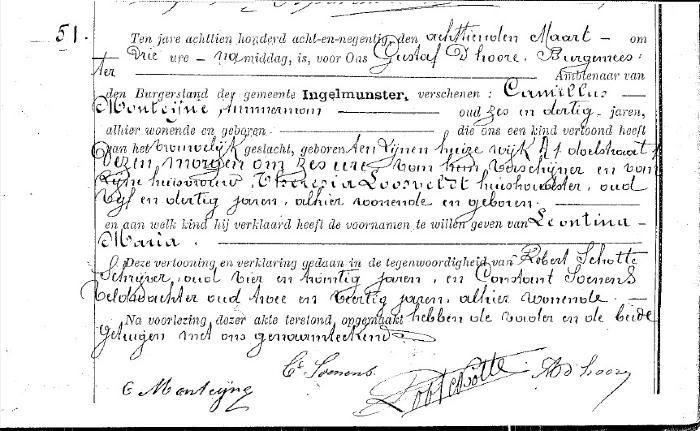 51.
Ten jare achttien honderd acht-en-negentig, den achttienden Maart - om
Drie ure - namiddag, is, voor Ons Gustaf D'hoore. Burgemees=
ter Ambtenaar van
den Burgerstand der gemeente Ingelmunster, verschenen: Camillus
Monteijne, timmerman oud zes en dertig - jaren,
alhier wonende en geboren - die ons een kind vertoond heeft
van het vrouwelijk geslacht, geboren ten zijnen huize wijk
dezen morgen om zes ure van hem verschijner en van
zijne huisvrouw, Theresia Loosveldt huishoudster, oud
vijf en dertig jaren, alhier wonende en geboren.
en aan welk kind hij verklaard heeft de voornamen te willen geven van Leontina -
Maria.
Deze vertooning en verklaring gedaan in de tegenwoordigheid van Robert Schotte
Schrijver, oud vier en twintig jaren, en Constant Soenens
Veldwachter oud twee en veertig jaren, alhier wonende.
Na voorlezing dezer akte terstond opgemaakt hebben de vader en de beide
getuigen met ons genaamteekend
Ct Soenens
C Monteijne Rob Schotte D'hoore